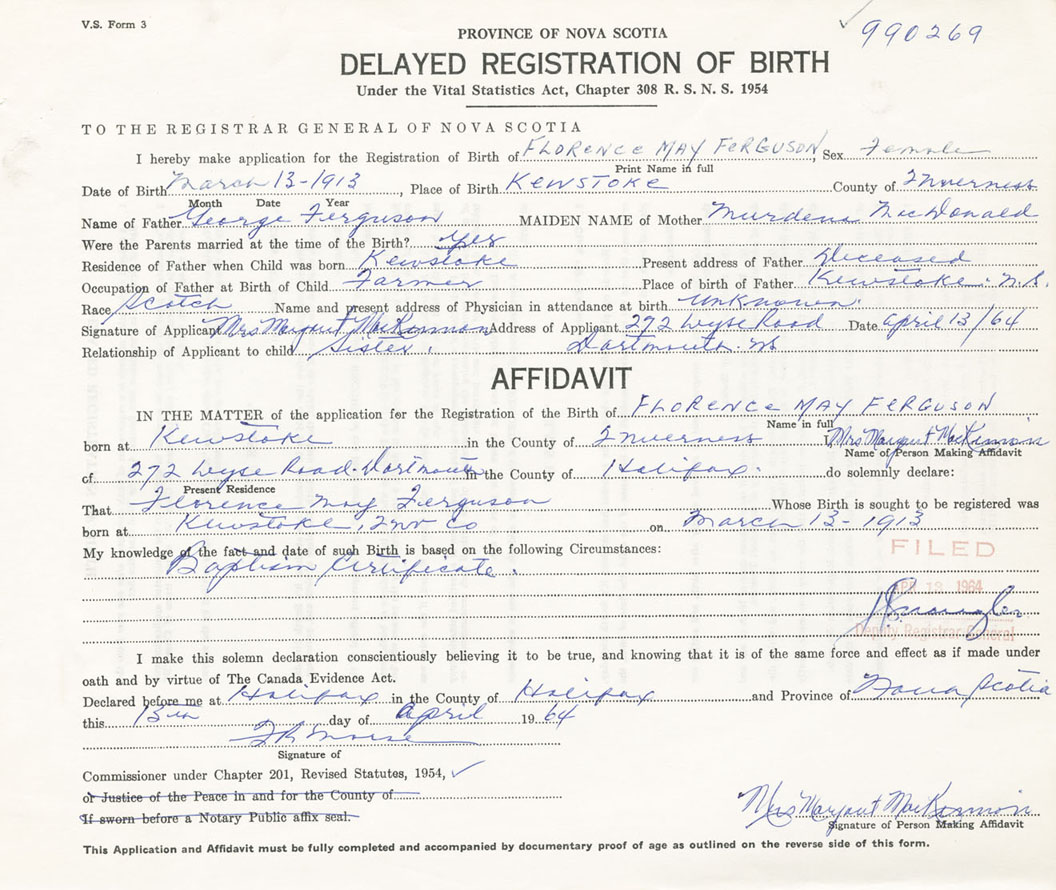 V.S. Form 3
990269
PROVINCE OF NOVA SCOTIA
DELAYED REGISTRATION OF BIRTH
Under the Vital Statistics Act, Chapter 308 R. S. N. S. 1954
TO THE REGISTRAR GENERAL OF NOVA SCOTIA
I hereby make application for the Registration of Birth of FLORENCE MAY FERGUSON, Sex Female
Print Name in full
Date of Birth March 13-1913, Place of Birth KEWSTOKE County of Inverness
Month Date Year
Name of Father George Ferguson MAIDEN NAME of Mother Murdena MacDonald
Were the Parents married at the time of the Birth? yes
Residence of Father when Child was born Kewstoke Present address of Father Deceased
Occupation of Father at Birth of Child Farmer Place of birth of Father Kewstoke. N.S.
Race Scotch Name and present address of Physician in attendance at birth Unknown.
Signature of Applicant Mrs Margaret MacKinnon Address of Applicant 272 Wyse Road Date April 13/64
Relationship of Applicant to child Sister. Dartmouth. NS
AFFIDAVIT
IN THE MATTER of the application for the Registration of the Birth of FLORENCE MAY FERGUSON
Name in full
born at Kewstoke in the County of Inverness I, Mrs Margaret MacKinnon
Name of Person Making Affidavit
of 272 Wyse Road. Dartmouth in the County of Halifax. do solemnly declare:
Present Residence
That Florence May Ferguson Whose Birth is sought to be registered was
born at Kewstoke, Inv Co on March 13-1913
My knowledge of the fact and date of such Birth is based on the following Circumstances:
Baptism Certificate.
FILED
APR 13 1964
Deputy Registrar General
I make this solemn declaration conscientiously believing it to be true, and knowing that it is of the same force and effect as if made under
oath and by virtue of The Canada Evidence Act.
Declared before me at Halifax in the County of Halifax and Province of Nova Scotia
this 13th day of April 1964
Signature of
Commissioner under Chapter 201, Revised Statutes, 1954,
or Justice of the Peace in and for the County of
If sworn before a Notary Public affix seal.
Mrs Margaret MacKinnon
Signature of Person Making Affidavit
This Application and Affidavit must be fully completed and accompanied by documentary proof of age as outlined on the reverse side of this form.